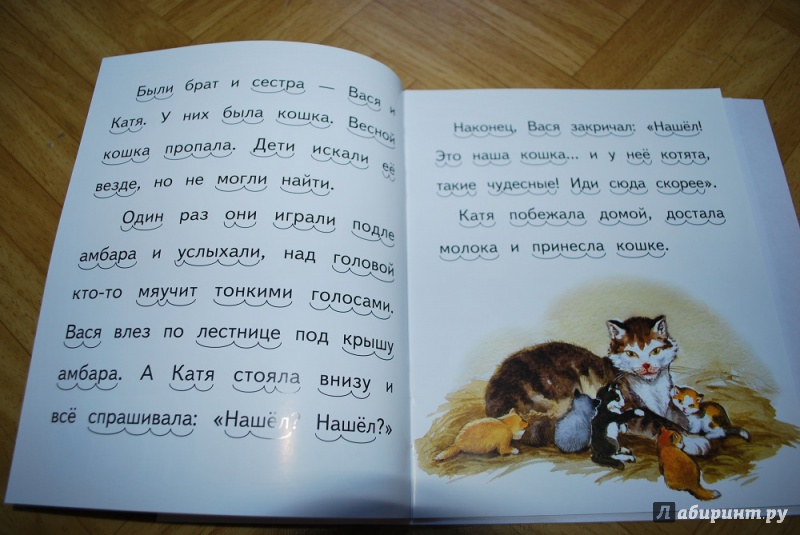 Были брат и сестра — Вася и
Катя. У них была кошка. Весной
кошка пропала. Дети искали её
везде, но не могли найти.
Один раз они играли подле
амбара и услыхали, над головой
кто-то мяучит тонкими голосами.
Вася влез по лестнице под крышу
амбара. А Катя стояла внизу и
всё спрашивала: «Нашёл? Нашёл?»
Наконец, Вася закричал: «Нашёл!
Это наша кошка... и у неё котята,
такие чудесные! Иди сюда скорее».
Катя побежала домой, достала
молока и принесла кошке.
Лабиринт.ру